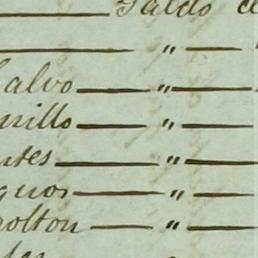 Saldo d
"
alvo "
nillo "
ntes "
guos "
olton "